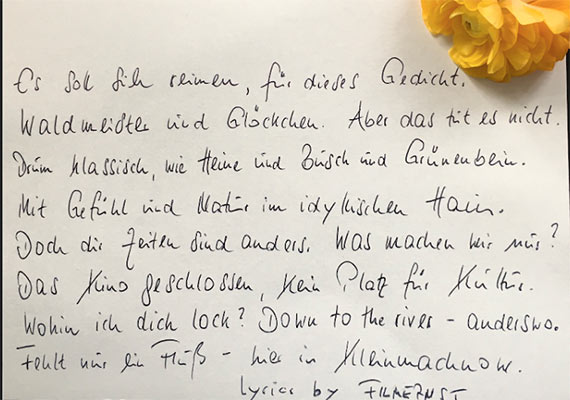 Es soll sich reimen, für dieses Gedicht.
Waldmeister und Glöckchen. Aber das tut es nicht.
Drum klassisch, wie Heine und Busch und Grünenbein.
Mit Gefühl und Natur im idyllischen Hain.
Doch die Zeiten sind anders. Was machen wir nur?
Das Kino geschlossen, kein Platz für Kultur.
Wohin ich dich lock? Down to the river – anderswo.
Fehlt nur ein Fluß – hier in Kleinmachnow.
Lyrics by FILMERNST